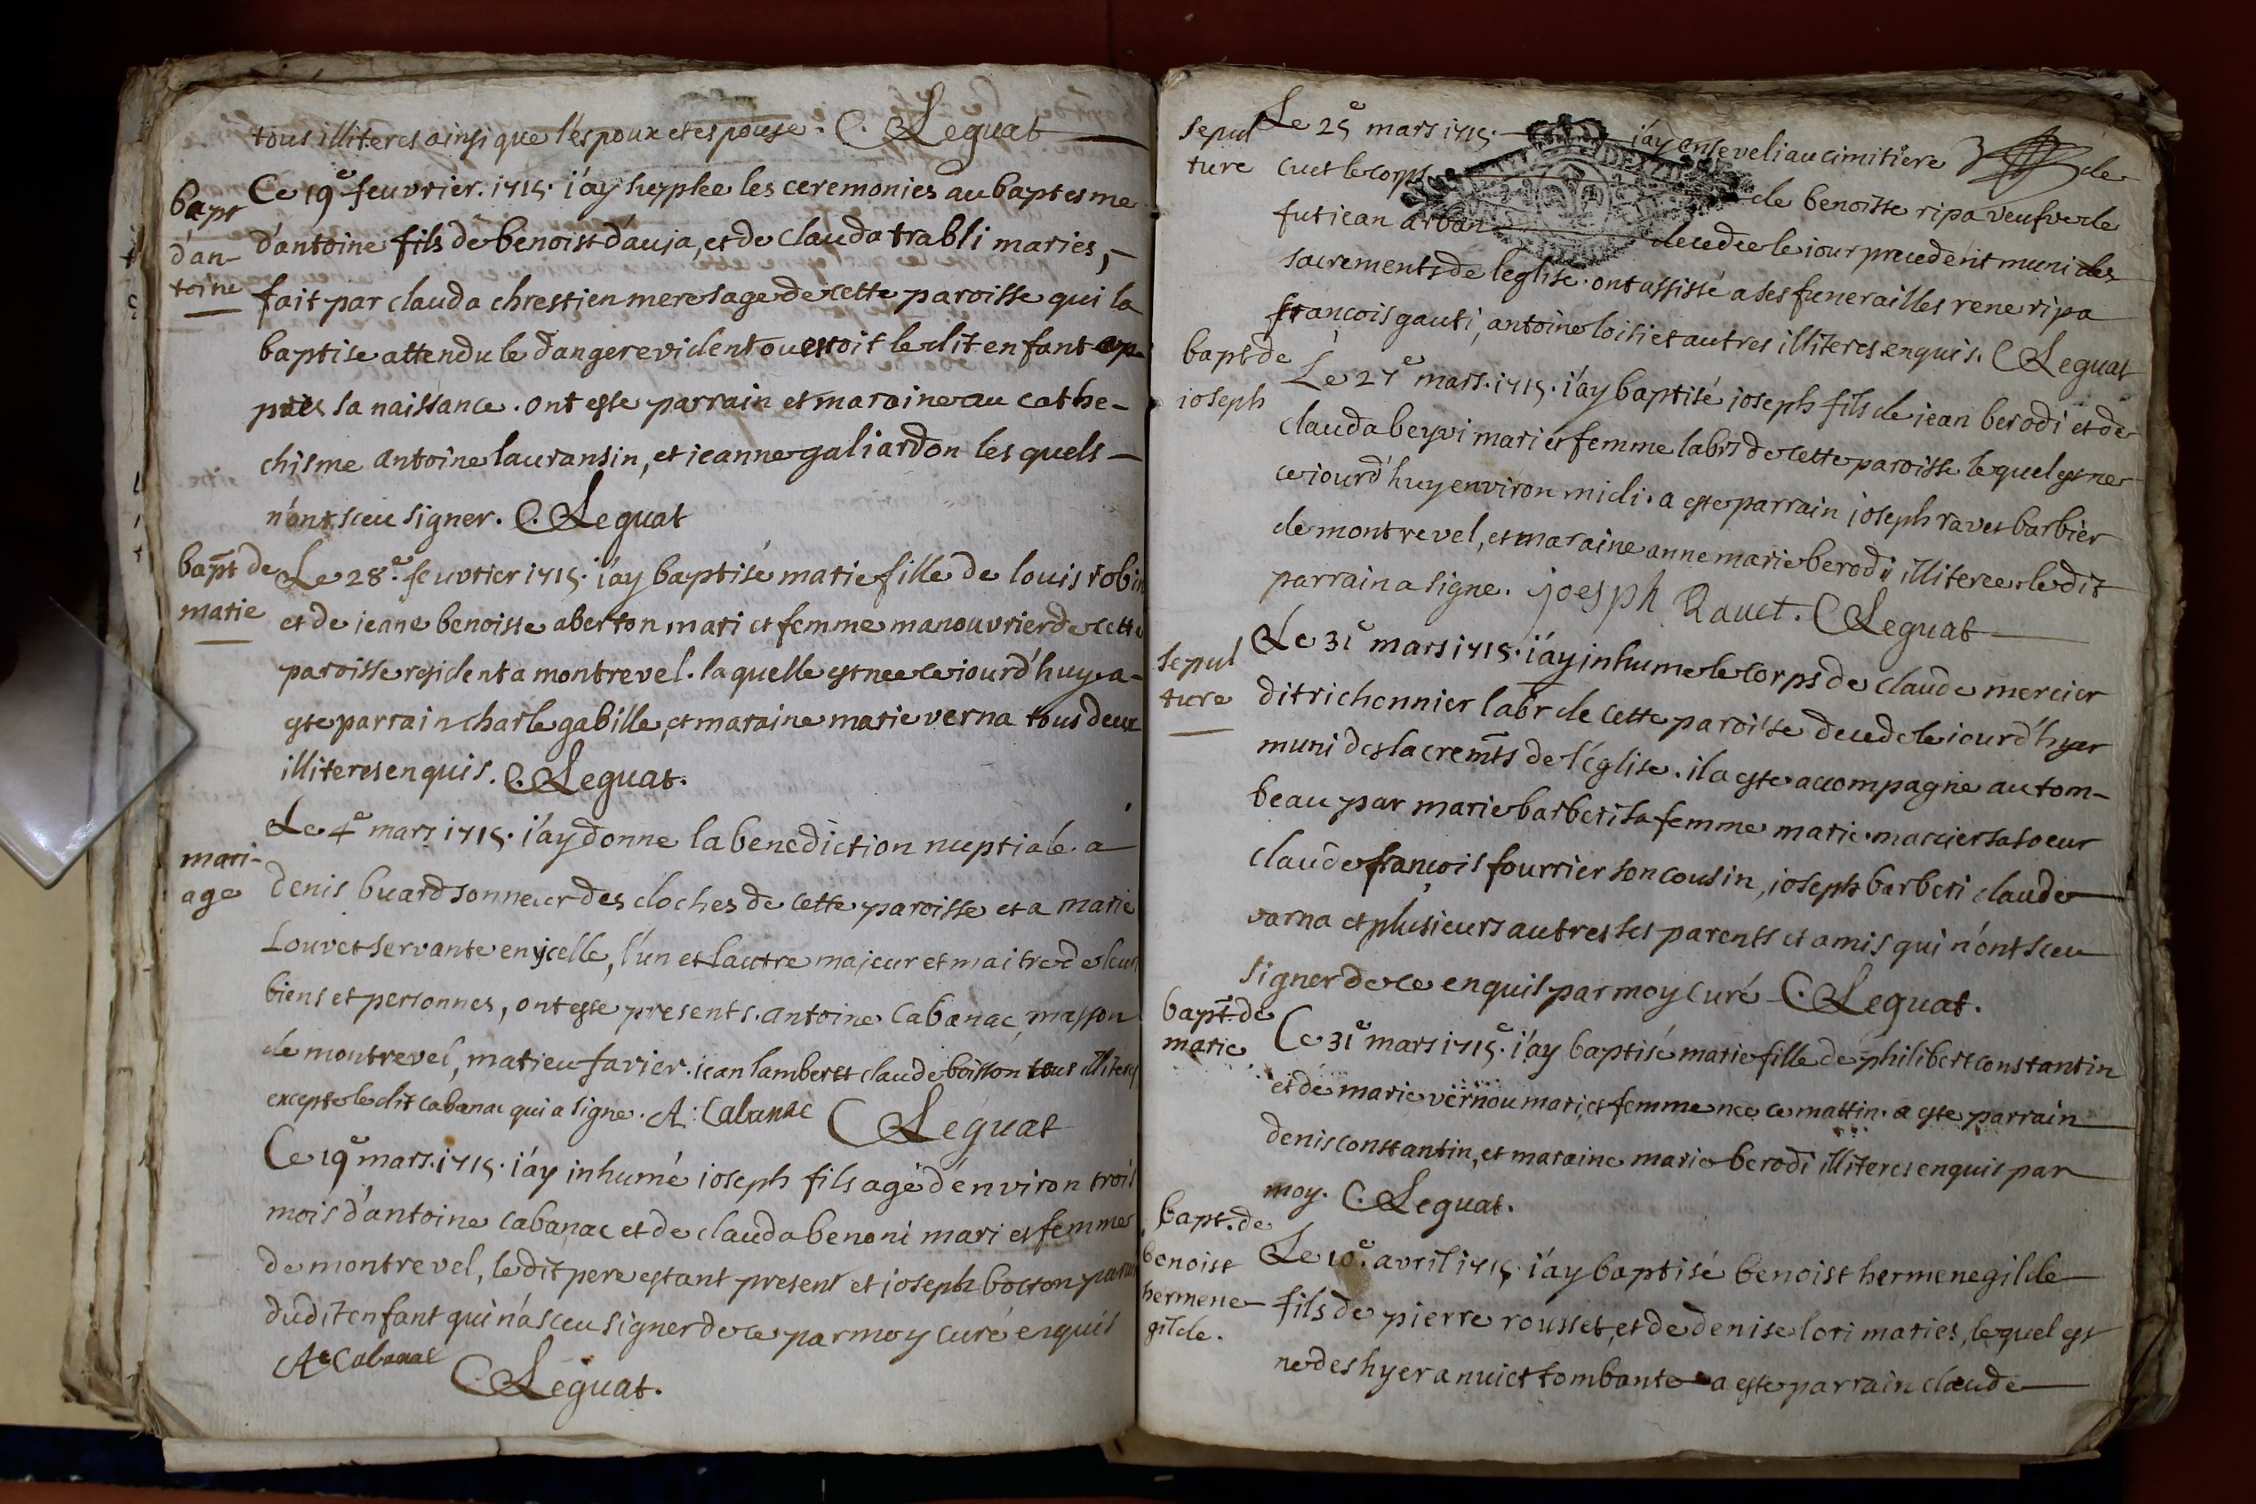 tous illiteres ainsi que l'espoux et espouse. C. Leguat
bapt
d'an-
toine
Ce 19e feuvrier. 1715. i'ay supplee les ceremonies au baptesme
d'antoine fils de benoist dauja, et de clauda trabli maries,
fait par clauda chrestien mere sage de cette paroisse qui la
baptise attendu le danger evident ou estoit le dit enfant ap
pres sa naissance. ont este parrain et maraine au cathe-
chisme antoine lauransin, et jeanne galiardon les quels
n'ont sceu signer. C. Leguat
bapt de
marie
Le 28e. feuvrier 1715. i'ay baptisé marie fille de louis robin
et de jeane benoiste aberton mari et femme manouvrier de cette
paroisse resident a montrevel. laquelle est nee ce jourd'huy. a
este parrain charle gabille, et maraine marie verna tous deux
illiteres enquis. C. Leguat.
mari-
age
Le 4e mars 1715. i'ay donne la benediction nuptiale. a
denis buard sonneur des cloches de cette paroisse et a marie
Louvet servante en ycelle, l'un et lautre majeur et maitre de leurs
biens et personnes, ont este presents. antoine Cabanac, masson
de montrevel, matieu farier. jean lambert et claude boisson tous illiteres
excepte le dit cabanac qui a signe. A: Cabanac C Leguat
Ce 19e mars. 1715. i'ay inhumé joseph fils agé d'environ trois
mois d'antoine cabanac et de clauda benoni mari et femme
de montrevel, le dit pere estant present et joseph bocron
du dit enfant qui n'a sceu signer de ce par moy curé enquis
A Cabanac C Leguat.
sepul
ture
Le 25e mars 1715. i'ay enseveli au cimitiere de
cuet le corps de benoiste ripa veufve de
fut jean arban decedee le jour precedent muni des
sacrements de leglise. ont assisté a ses funerailles rene ripa
francois gauti, antoine loisi et autres illiteres enquis. C Leguat
bapt de
joseph
Le 27e mars. 1715. i'ay baptisé joseph fils de jean berodi et de
clauda beyvi mari et femme labrs de cette paroisse le quel est ne
ce jourd'huy environ midi. a este parrain joseph ravet barbier
de montrevel, et maraine anne marie berodi illiteree le dit
parrain a signe. joesph Rauet. C Leguat
sepul
ture
Le 31e mars 1715. i'ay inhume le corps de claude mercier
dit richonnier labr de cette paroisse decede le jourd'hyer
muni des sacremts de l'église. il a este accompagne au tom-
beau par marie barberi sa femme marie marcier sa soeur
claude francois fourrier son cousin, joseph barberi claude
varna et plusieurs autres ses parents et amis qui n'ont sceu
signer de ce enquis par moy curé C. Leguat.
bapt. de
marie
Ce 31e mars 1715. i'ay baptisé marie fille de philibert constantin
et de marie vernou mari et femme nee ce mattin. a este parrain
denis constantin, et maraine marie berodi illiteres enquis par
moy. C. Leguat.
bapt. de
benoist
hermene-
gilde.
Le 10e. avril 1715. i'ay baptisé benoist hermenegilde
fils de pierre rousset, et de denise lori maries, le quel est
ne des hyer a nuict tombante a este parrain claude